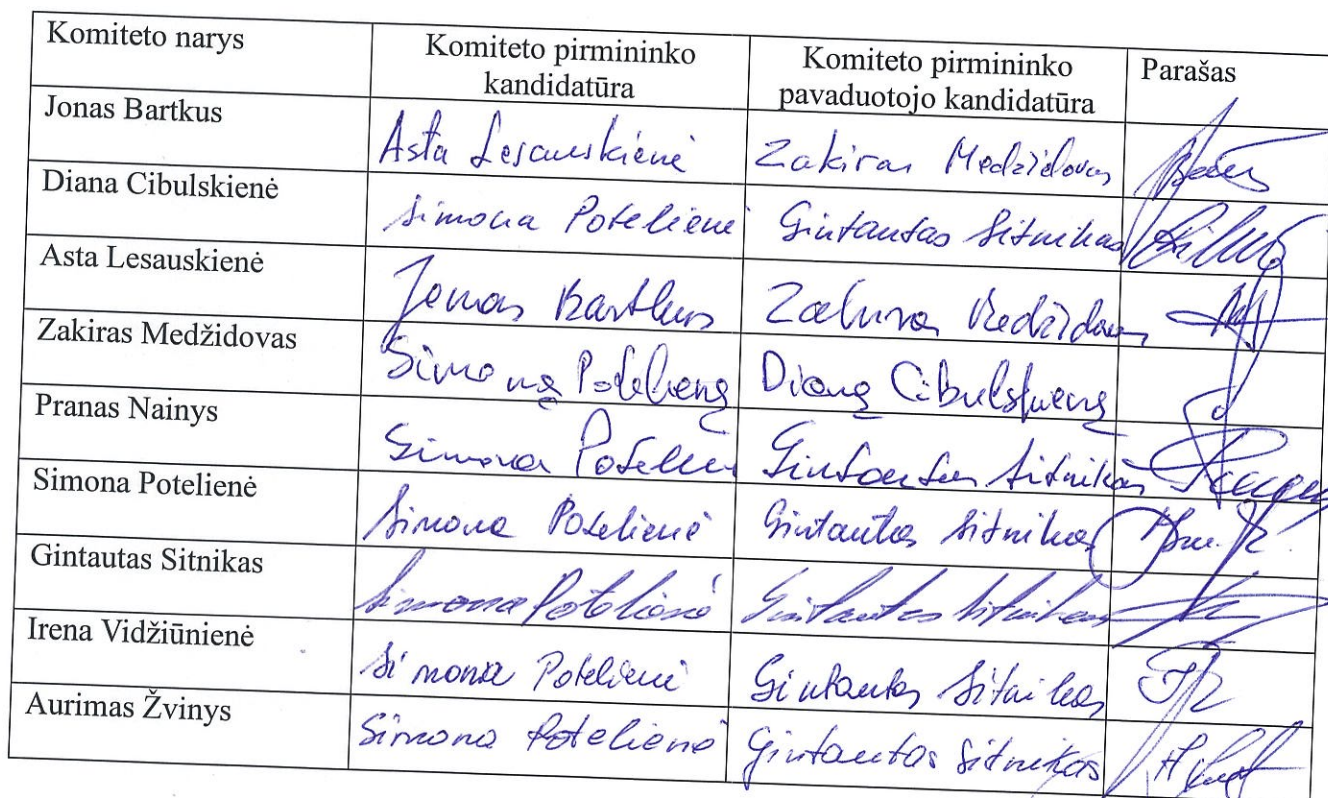 Komiteto narys
Komiteto pirmininko
kandidatūra
Komiteto pirmininko
pavaduotojo kandidatūra
Parašas
Jonas Bartkus
Asta Lesauskienė
Zakiras Medžidovas
Diana Cibulskienė
Simona Potelienė
Gintautas Sitnikas
Asta Lesauskienė
Jonas Bartkus
Zakiras Medžidovas
Zakiras Medžidovas
Simoną Potelieną
Dianą Cibulskieną
Pranas Nainys
Simona Potelien
Gintautas Sitnikas
Simona Potelienė
Simona Potelienė
Gintautas Sitnikas
Gintautas Sitnikas
Simona Potelienė
Gintautas Sitnikas
Irena Vidžiūnienė
Simona Potelienė
Gintautas Sitnikas
Aurimas Žvinys
Simona Potelienė
Gintautas Sitnikas